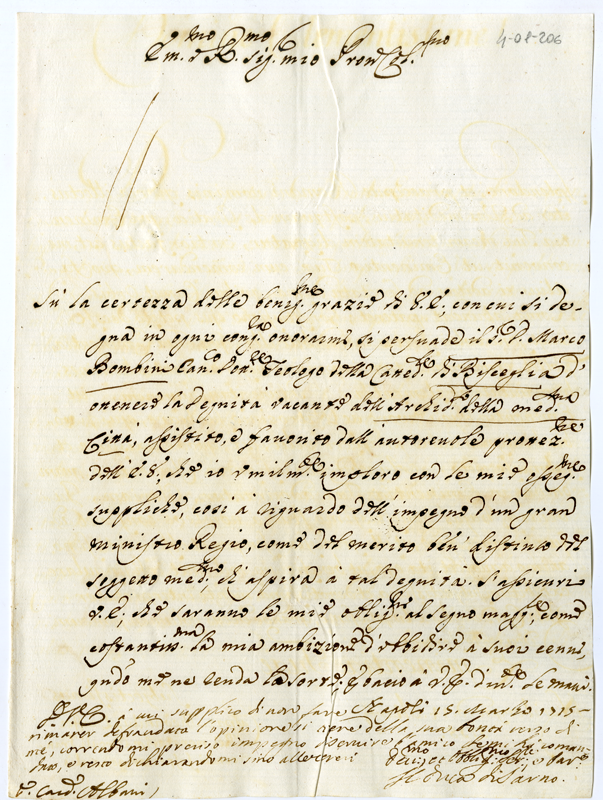 4-08-206
Em.mo e R.mo Sig. mio Pron Col.mo
Sù la certezza delle benig.me grazie di V.E., con cui si de-
gna in ogni cong.ra onorarmi, si persuade il S.r D. Marco
Bombini Can.co Teologo della Cated.le di Bisceglia d'
ottenere la degnità vacante dell'Archid.to della med.ma
Città, assistito, e favorito dall'autorevole protez.ne
dell'E.V., che io umilm.te imploro con le mie osseq.me
suppliche, così à riguardo dell'impegno d'un gran
Ministro Regio, come del merito ben distinto del
soggetto med.mo, ch'aspira à tal degnità. S'assicuri
V.E., che saranno le mie oblig.ni al segno magg.re, come
costantiss.ma la mia ambizione d'obbidire à suoi cenni,
qndo me ne renda la sorte, e bacio à V.E. le mani.
Napoli 15. Marzo 1715
à cui supplico di non fare
rimaner defraudata l'opinione si tiene della sua bontà verso di
me, correndomi preciso impegno di servire l'amico
e resto dichiarandomi sino alle ceneri
Il Duca di Sarno.
S. Card. Albani